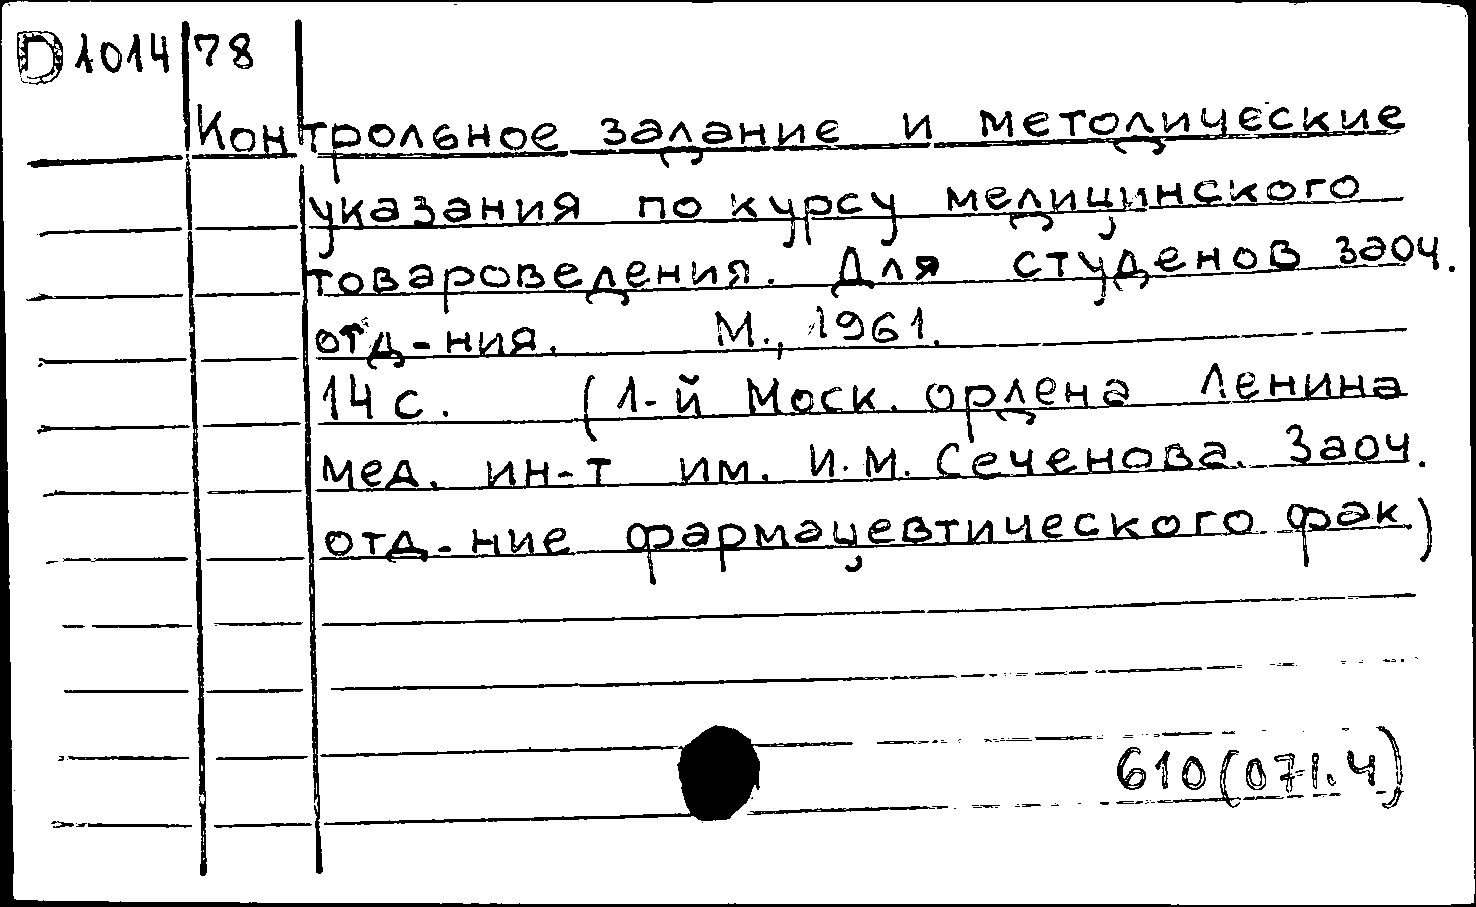 D1014 78
Контрольное задание и методические
указания по курсу медицинского
товароведения. Для студенов заоч.
отд-ния. М., 1961.
14 с. (1-й Моск. ордена Ленина
мед. ин-т им. И.М. Сеченова. Заоч.
отд-ние фармацевтического фак.)
610(071.4)